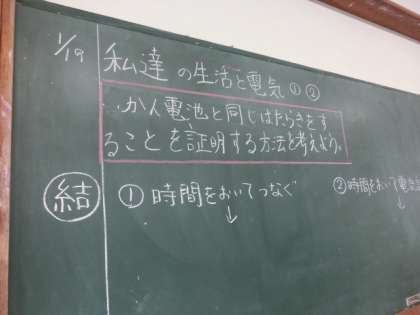 1/19
私達の生活と電気①②
かん電池と同じはたらきをす
ることを証明する方法を考えよう。
結
①時間をおいてつなぐ
↓
②時間をおいて電
↓